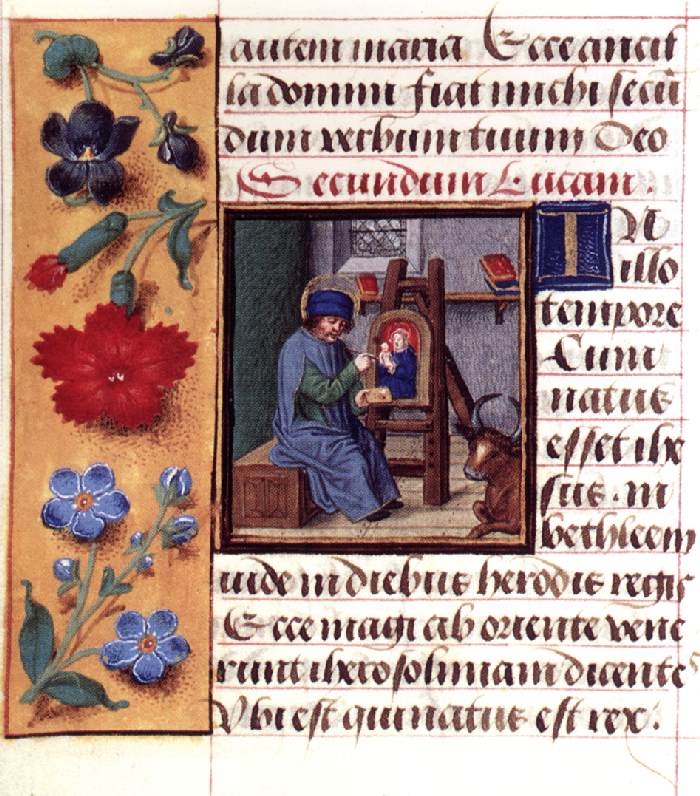 autem maria Ecce ancil
la domini fiat michi secū
dum verbum tuum Deo
Secundum Lucam.
IN
illo
tempore
Cum
natus
esset ihe
sus. in
bethleem
iude in diebus herodis regis
Ecce magi ab oriente vene
runt iherosolimam dicente
Vbi est qui natus est rex.